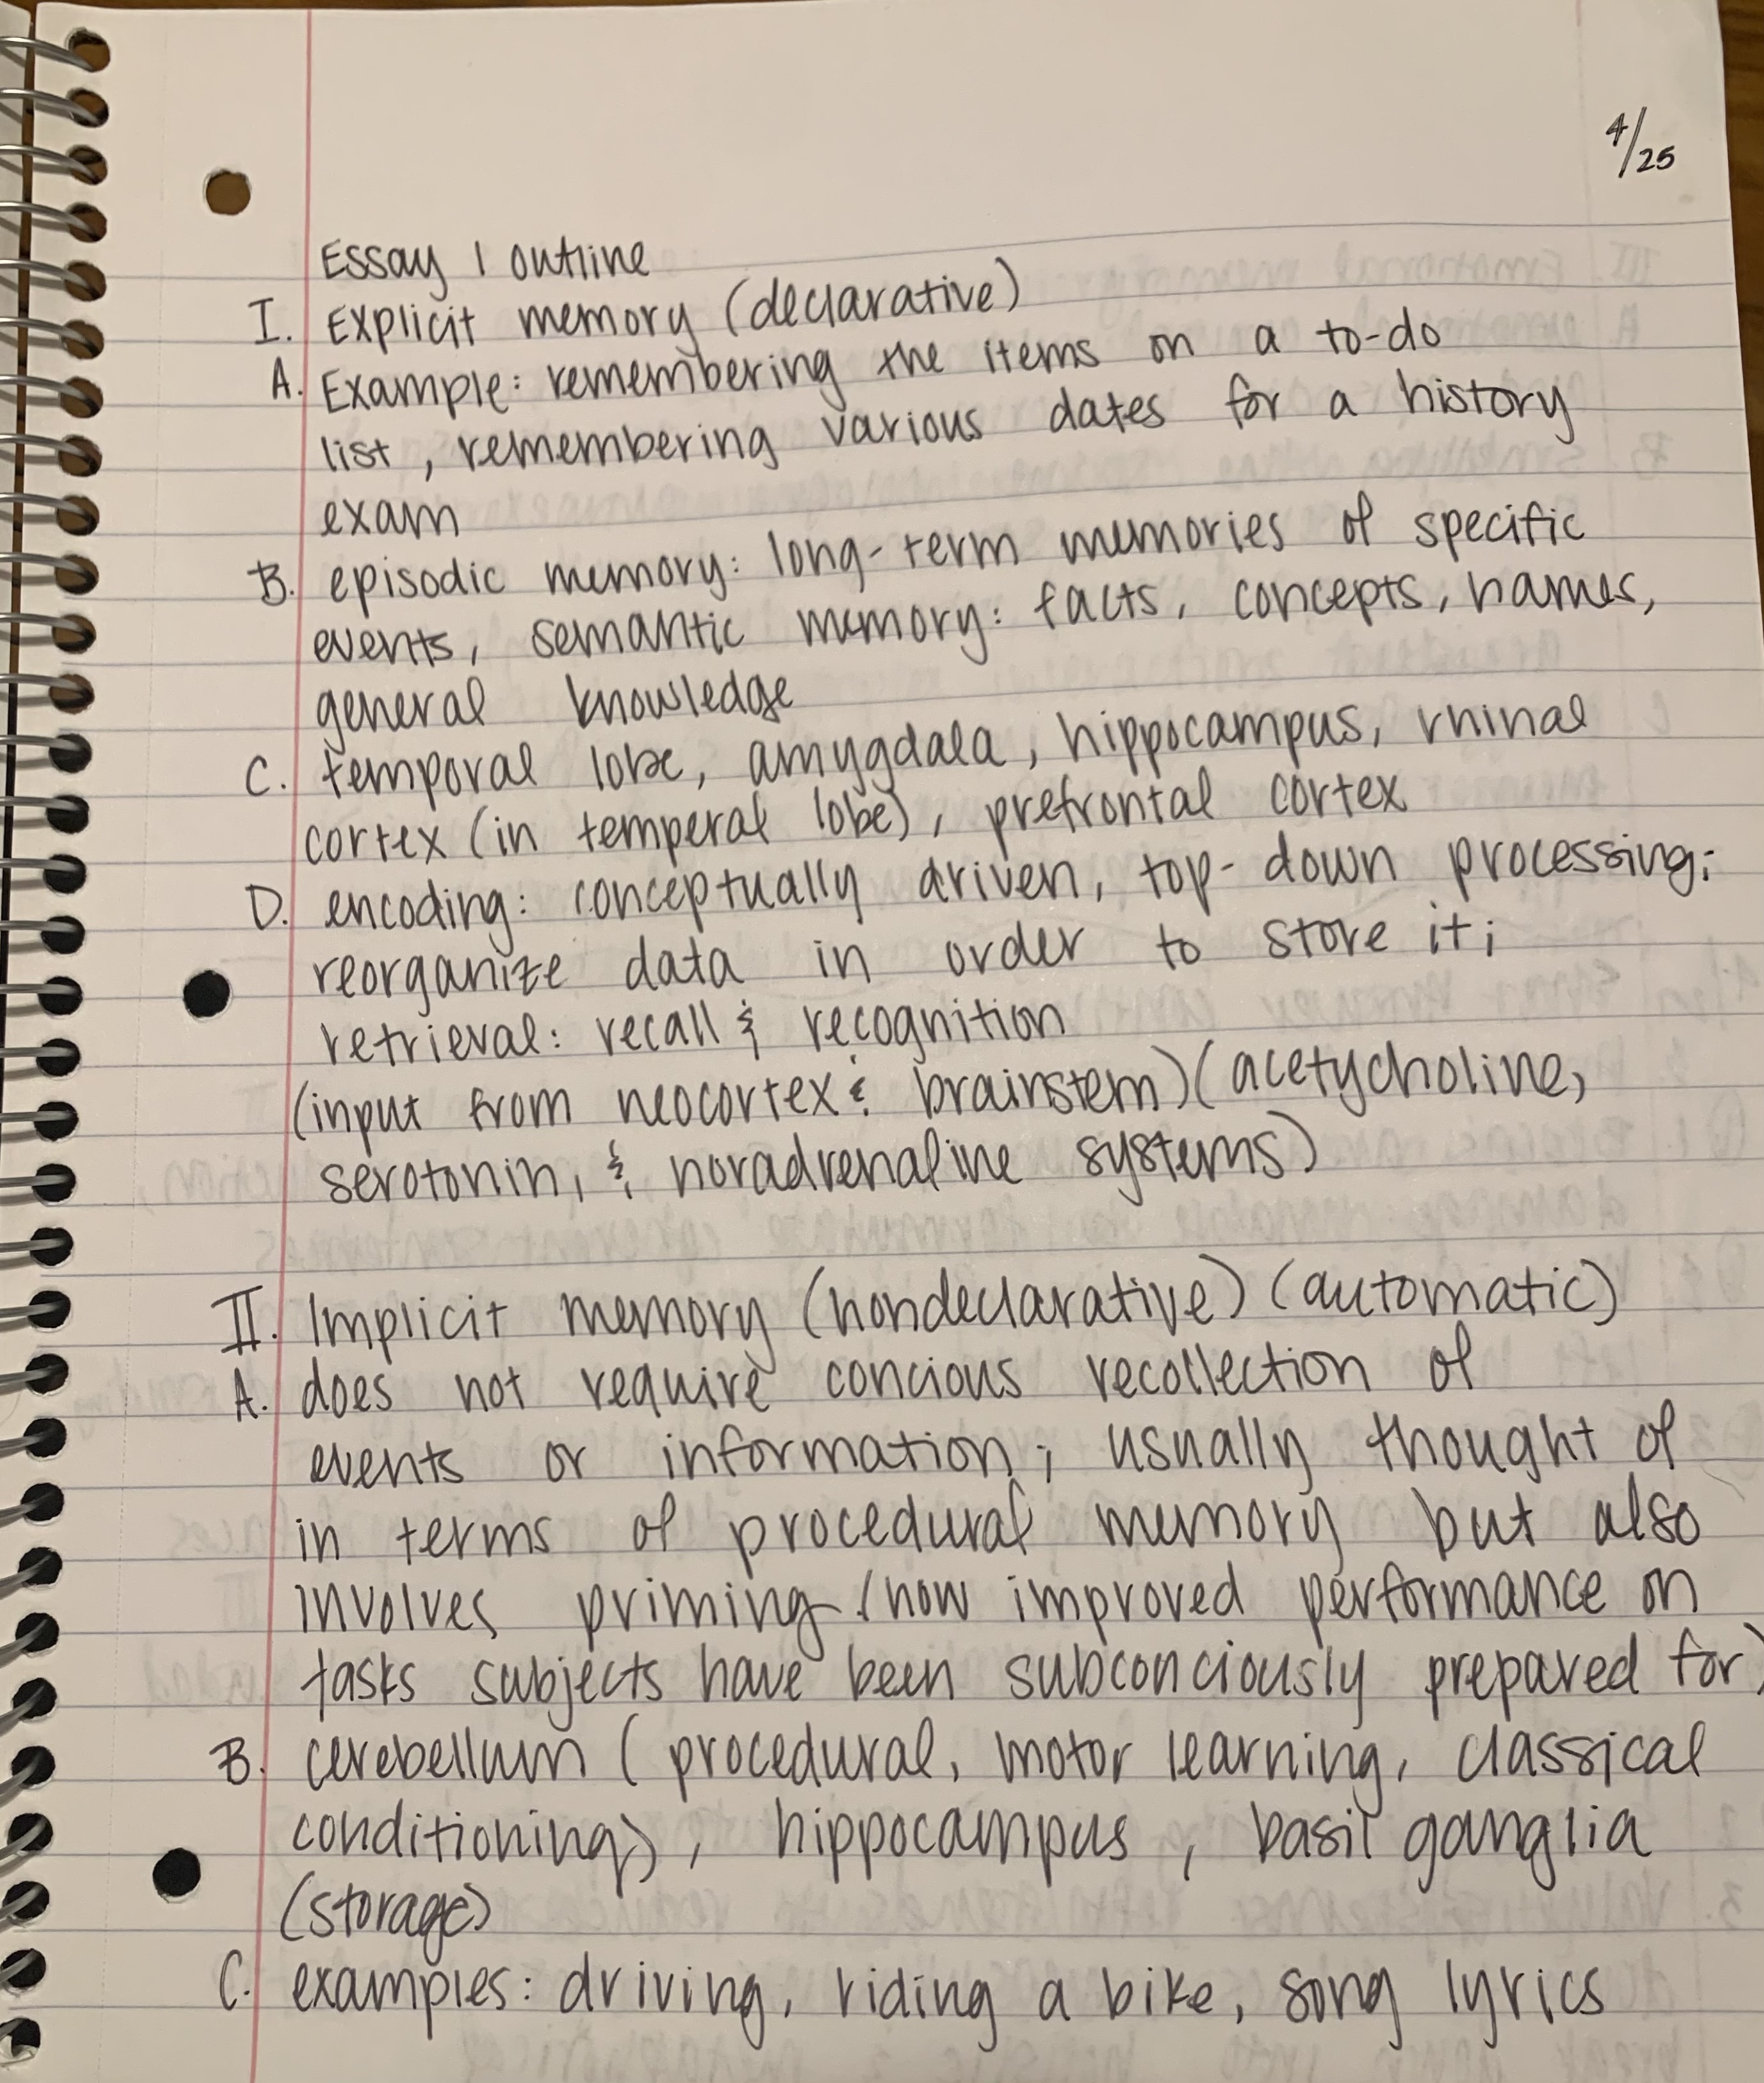 4/25
Essay 1 outline
I. Explicit memory (declarative)
A. Example: remembering the items on a to-do
list, remembering various dates for a history
exam
B. episodic memory: long-term memories of specific
events, semantic memory: facts, concepts, names,
general knowledge
C. temporal lobe, amygdala, hippocampus, rhinal
cortex (in temperal lobe), prefrontal cortex
D. encoding: conceptually driven, top-down processing;
reorganize data in order to store it;
retrieval: recall & recognition
(input from neocortex & brainstem) (acetycholine,
serotonin, & noradrenaline systems)
II. Implicit memory (nondeclarative) (automatic)
A. does not require concious recollection of
events or information; usually thought of
in terms of procedural memory but also
involves priming (how improved performance on
tasks subjects have been subconciously prepared for)
B. cerebellum (procedural, motor learning, classical
conditioning), hippocampus, basil ganglia
(storage)
C. examples: driving, riding a bike, song lyrics